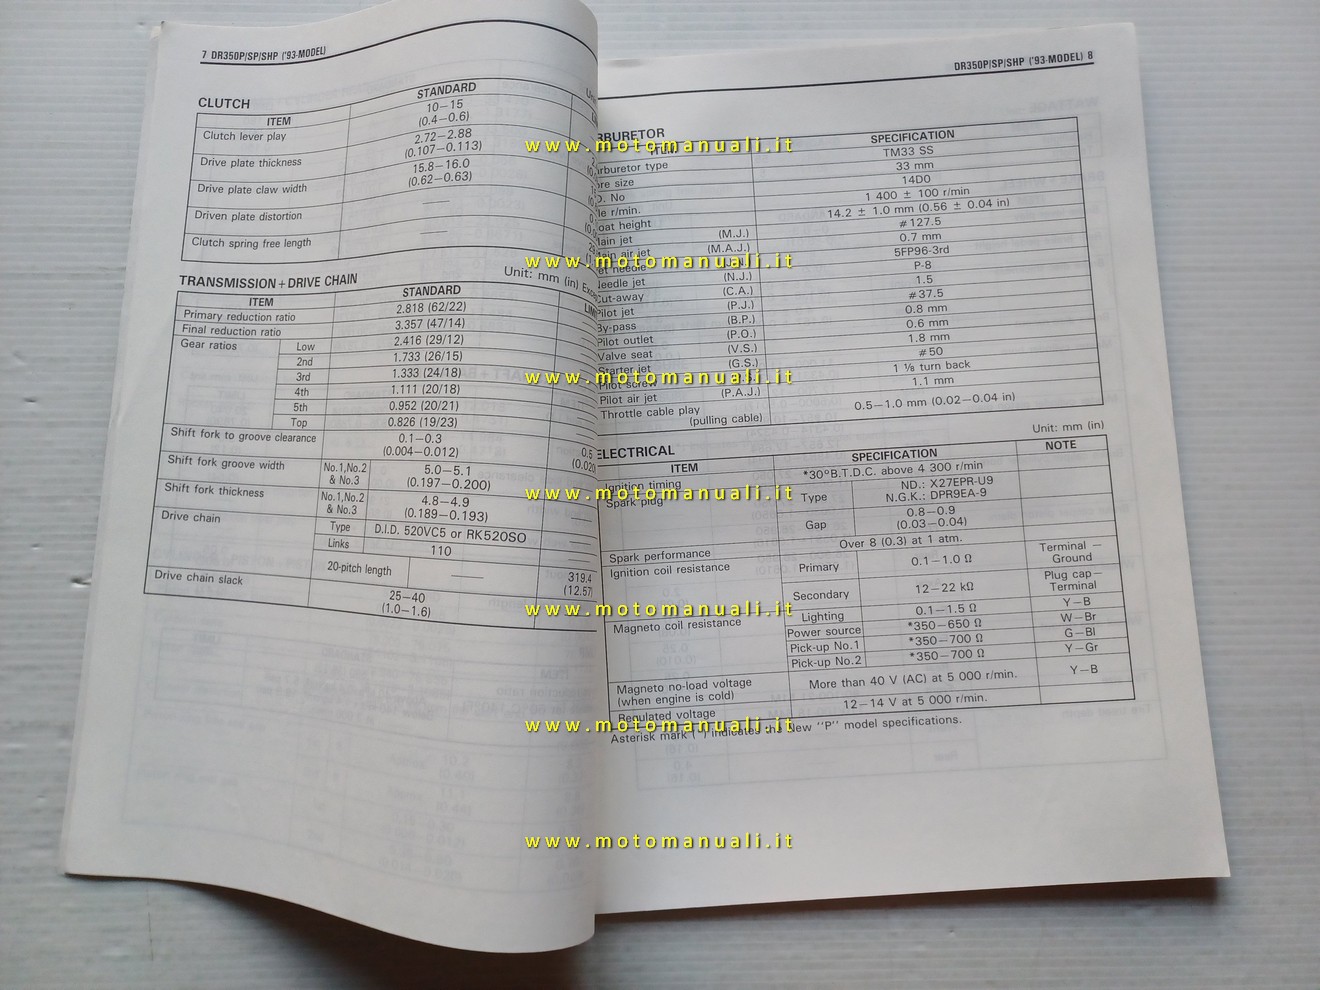 7 DR350P/SP/SHP ('93-MODEL)
CLUTCH
ITEM STANDARD
Clutch lever play 10—15
(0.4—0.6)
Drive plate thickness 2.72—2.88
(0.107—0.113)
Drive plate claw width 15.8—16.0
(0.62—0.63)
Driven plate distortion ——
Clutch spring free length ——
TRANSMISSION + DRIVE CHAIN Unit: mm (in)
ITEM STANDARD
Primary reduction ratio 2.818 (62/22)
Final reduction ratio 3.357 (47/14)
Gear ratios Low 2.416 (29/12)
2nd 1.733 (26/15)
3rd 1.333 (24/18)
4th 1.111 (20/18)
5th 0.952 (20/21)
Top 0.826 (19/23)
Shift fork to groove clearance 0.1—0.3
(0.004—0.012) 0.5
(0.020)
Shift fork groove width No.1,No.2
& No.3 5.0—5.1
(0.197—0.200)
Shift fork thickness No.1,No.2
& No.3 4.8—4.9
(0.189—0.193) ——
Drive chain Type D.I.D. 520VC5 or RK520SO ——
Links 110 ——
20-pitch length —— 319.4
(12.57)
Drive chain slack 25—40
(1.0—1.6) ——
DR350P/SP/SHP ('93-MODEL) 8
RBURETOR
SPECIFICATION
rburetor type TM33 SS
re size 33 mm
. No 14D0
le r/min. 1 400 ± 100 r/min
oat height 14.2 ± 1.0 mm (0.56 ± 0.04 in)
lain jet (M.J.) #127.5
air jet (M.A.J.) 0.7 mm
et needle (J.N.) 5FP96-3rd
Needle jet (N.J.) P-8
Cut-away (C.A.) 1.5
Pilot jet (P.J.) #37.5
By-pass (B.P.) 0.8 mm
Pilot outlet (P.O.) 0.6 mm
Valve seat (V.S.) 1.8 mm
Starter jet (G.S.) #50
Pilot screw 1 ⅛ turn back
Pilot air jet (P.A.J.) 1.1 mm
Throttle cable play
(pulling cable) 0.5—1.0 mm (0.02—0.04 in)
ELECTRICAL Unit: mm (in)
ITEM SPECIFICATION NOTE
Ignition timing *30°B.T.D.C. above 4 300 r/min
Spark plug Type ND.: X27EPR-U9
N.G.K.: DPR9EA-9
Gap 0.8—0.9
(0.03—0.04)
Spark performance Over 8 (0.3) at 1 atm.
Ignition coil resistance Primary 0.1—1.0 Ω Terminal —
Ground
Secondary 12—22 kΩ Plug cap—
Terminal
Magneto coil resistance Lighting 0.1—1.5 Ω Y—B
Power source *350—650 Ω W—Br
Pick-up No.1 *350—700 Ω G—Bl
Pick-up No.2 *350—700 Ω Y—Gr
Magneto no-load voltage
(when engine is cold) More than 40 V (AC) at 5 000 r/min. Y—B
Regulated voltage 12—14 V at 5 000 r/min.
Asterisk mark (*) indicates the New "P" model specifications.
www.motomanuali.it
www.motomanuali.it
www.motomanuali.it
www.motomanuali.it
www.motomanuali.it
www.motomanuali.it
www.motomanuali.it